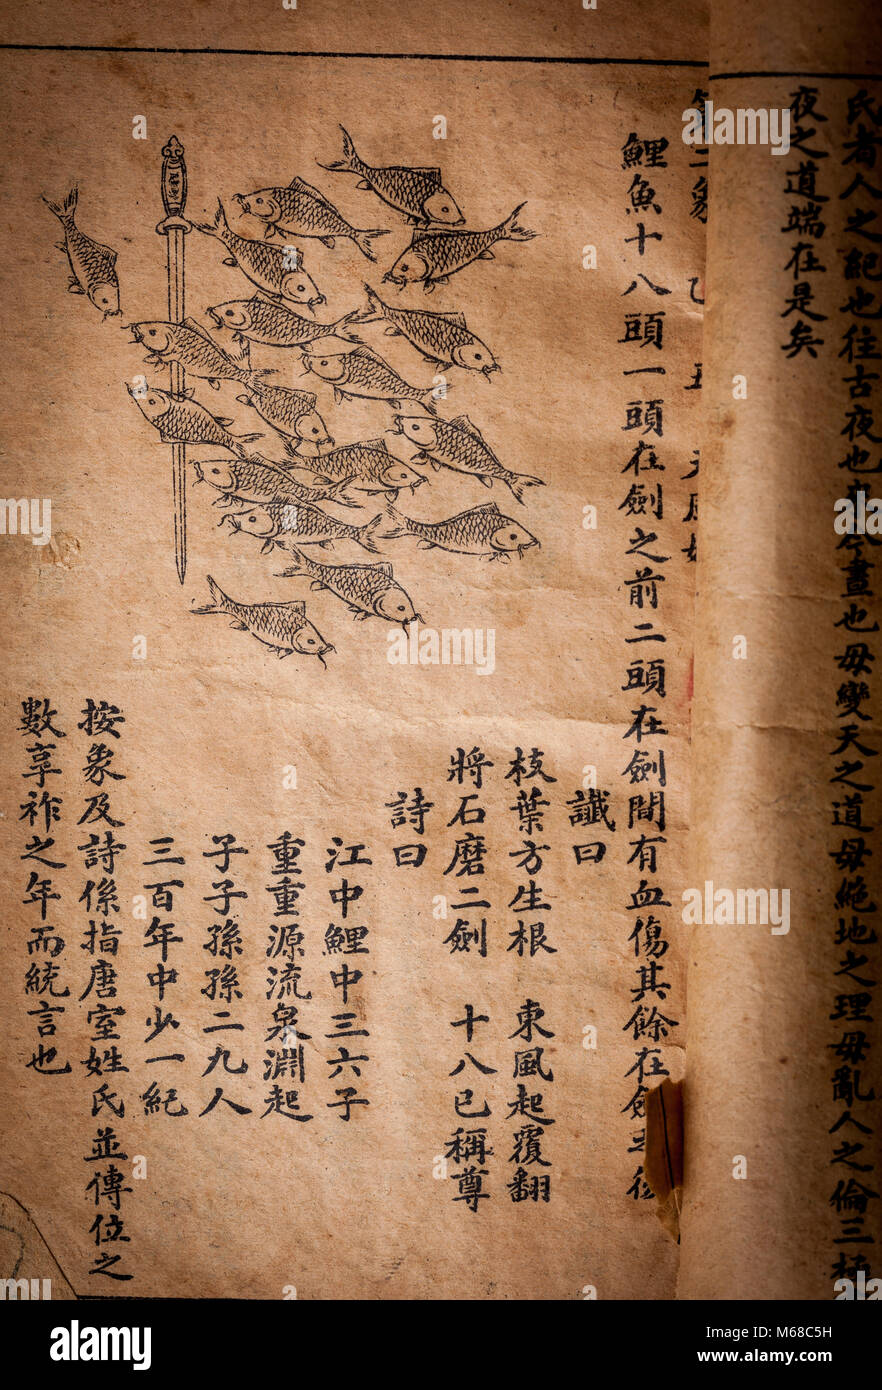 氏者人之紀也往古夜也來今晝也毋變天之道毋絕地之理毋亂人之倫三極
夜之道端在是矣
二象 乙 丑 天風姤
鯉魚十八頭一頭在劍之前二頭在劍間有血傷其餘在劍之後
讖曰
枝葉方生根 東風起覆翻
將石磨二劍 十八已稱尊
詩曰
江中鯉中三六子
重重源流泉淵起
子子孫孫二九人
三百年中少一紀
按象及詩係指唐室姓氏並傳位之
數享祚之年而統言也
alamy
Image ID: M68C5H
www.alamy.com